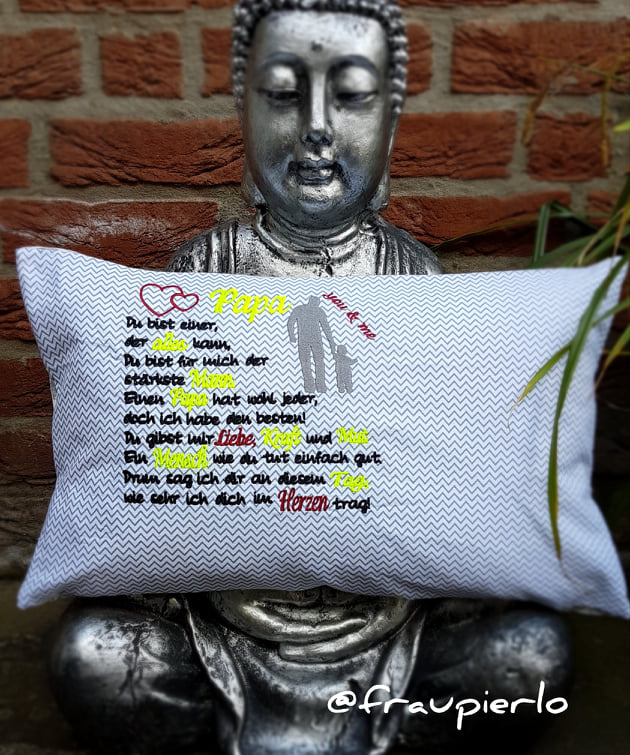 Papa
you & me
Du bist einer,
der alles kann,
Du bist für mich der
stärkste Mann.
Einen Papa hat wohl jeder,
doch ich habe den besten!
Du gibst mir Liebe, Kraft und Mut
Ein Mensch wie du tut einfach gut.
Drum sag ich dir an diesem Tag,
wie sehr ich dich im Herzen trag!
@fraupierlo